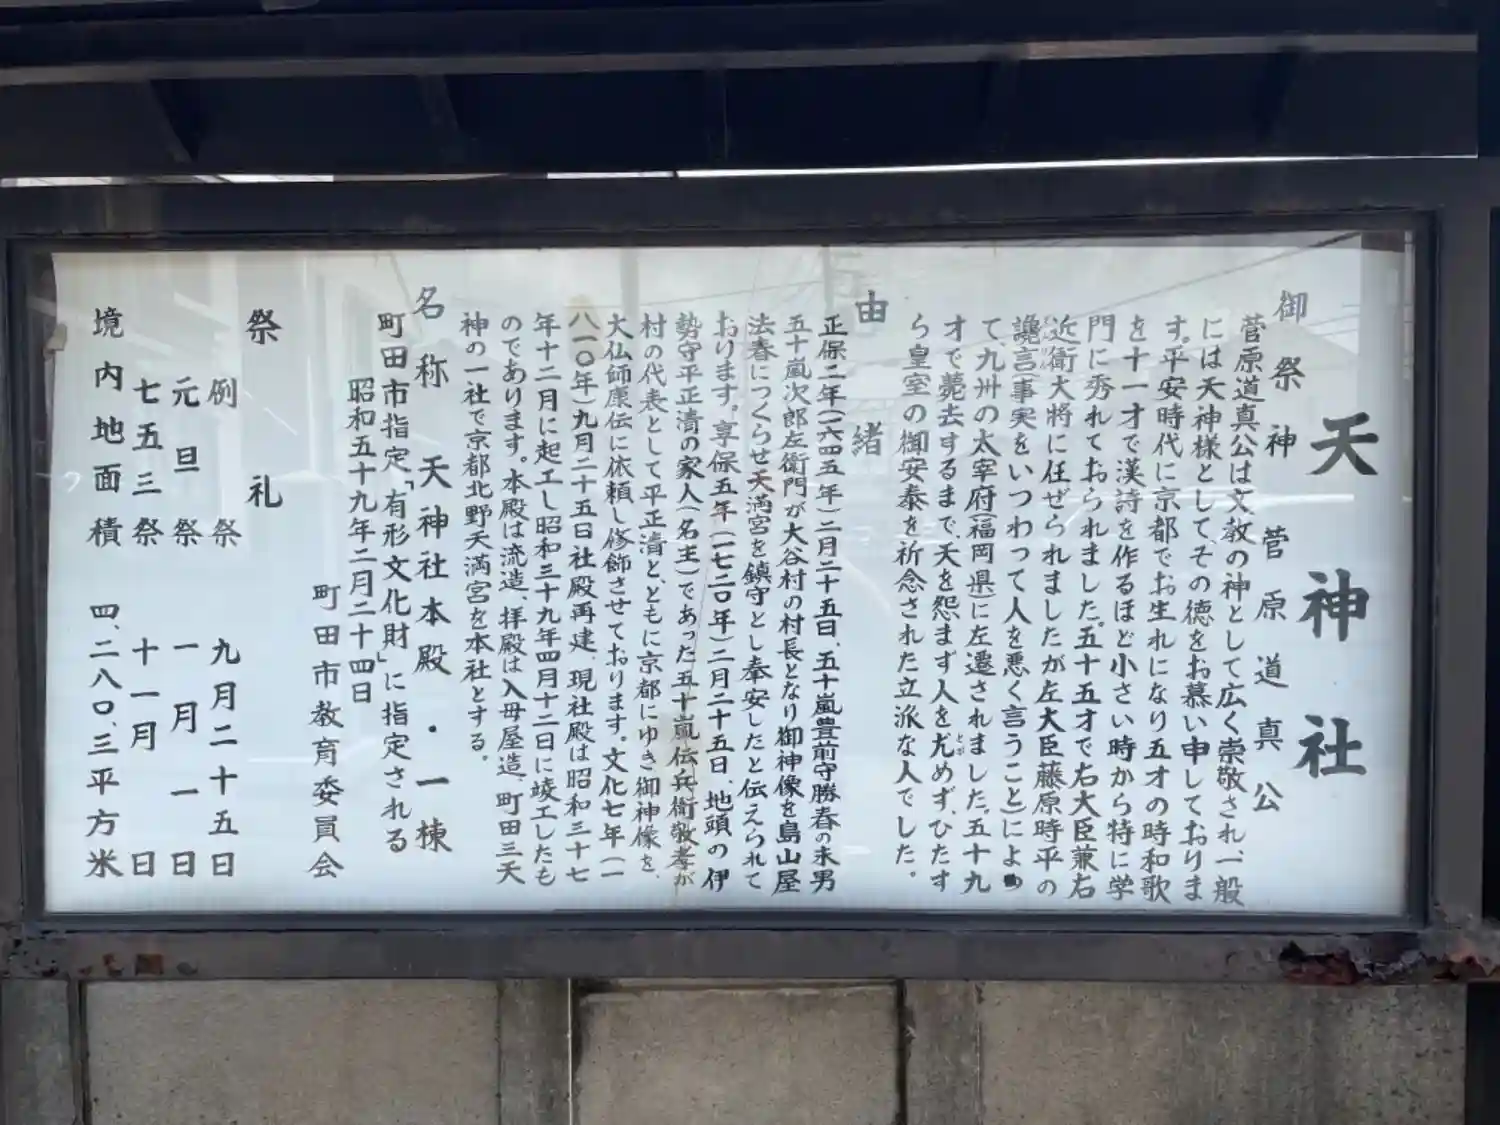 天神社
御祭神 菅原道真公
菅原道真公は文教の神として広く崇敬され、一般
には天神様としてその徳をお慕い申しておりま
す。平安時代に京都でお生れになり五才の時和歌
を十一才で漢詩を作るほど小さい時から特に学
門に秀れておられました。五十五才で右大臣兼右
近衛大将に任ぜられましたが左大臣藤原時平の
讒言(事実をいつわって人を悪く言うこと)によ
て、九州の太宰府(福岡県)に左遷されました。五十九
才で薨去するまで、天を怨まず人を尤めず、ひたす
とが
ら皇室の御安泰を祈念された立派な人でした。
由緒
正保二年(一六四五年)二月二十五日、五十嵐豊前守勝春の末男
五十嵐次郎左衛門が大谷村の村長となり御神像を島山屋
法春につくらせ天満宮を鎮守とし奉安したと伝えられて
おります。享保五年(一七二〇年)二月二十五日、地頭の伊
勢守平正清の家人(名主)であった五十嵐伝兵衛敬孝が
村の代表として平正清と、ともに京都にゆき御神像を、
大仏師康伝に依頼し修飾させております。文化七年(一
八一〇年)九月二十五日社殿再建、現社殿は昭和三十七
年十二月に起工し昭和三十九年四月十二日に竣工したも
のであります。本殿は流造、拝殿は入母屋造、町田三天
神の一社で京都北野天満宮を本社とする。
名称 天神社本殿・一棟
町田市指定「有形文化財」に指定される
昭和五十九年二月二十四日
町田市教育委員会
祭礼
例祭 九月二十五日
元旦祭 一月一日
七五三祭 十一月 日
境内地面積 四、二八〇、三平方米